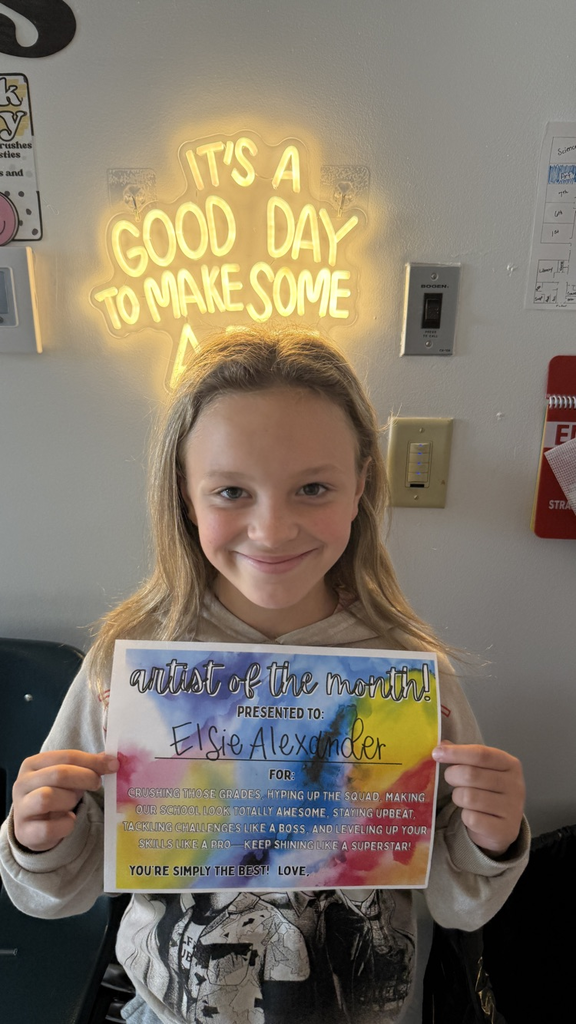 IT'S A
GOOD DAY
TO MAKE SOME
BOGEN
artist of the month!
PRESENTED TO:
Elsie Alexander
FOR:
CRUSHING THOSE GRADES, HYPING UP THE SQUAD, MAKING
OUR SCHOOL LOOK TOTALLY AWESOME, STAYING UPBEAT,
TACKLING CHALLENGES LIKE A BOSS, AND LEVELING UP YOUR
SKILLS LIKE A PRO—KEEP SHINING LIKE A SUPERSTAR!
YOU'RE SIMPLY THE BEST! LOVE,